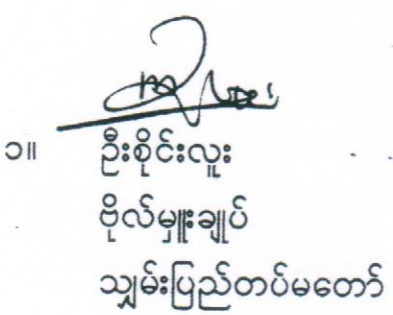 ၁။ ဦးစိုင်းလူး
ဗိုလ်မှူးချုပ်
သျှမ်းပြည်တပ်မတော်